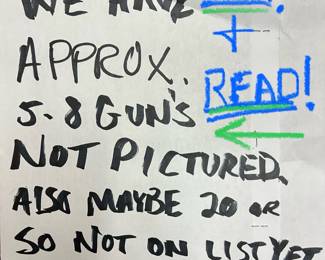 WE HAVE
+
APPROX.
5-8 GUN'S READ!
NOT PICTURED.
ALSO MAYBE 20 OR
SO NOT ON LIST YET